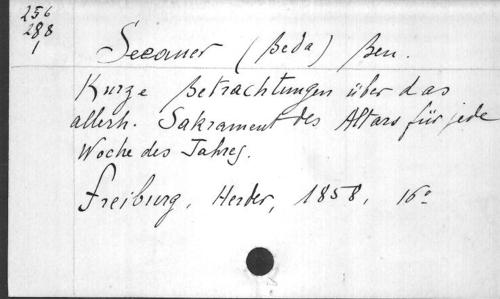 256
288
1
Seeauer (Beda) Ben.
Kurze Betrachtungen über das
allerh. Sakrament des Altars für jede
Woche des Jahres.
Freiburg, Herder, 1858, 16°